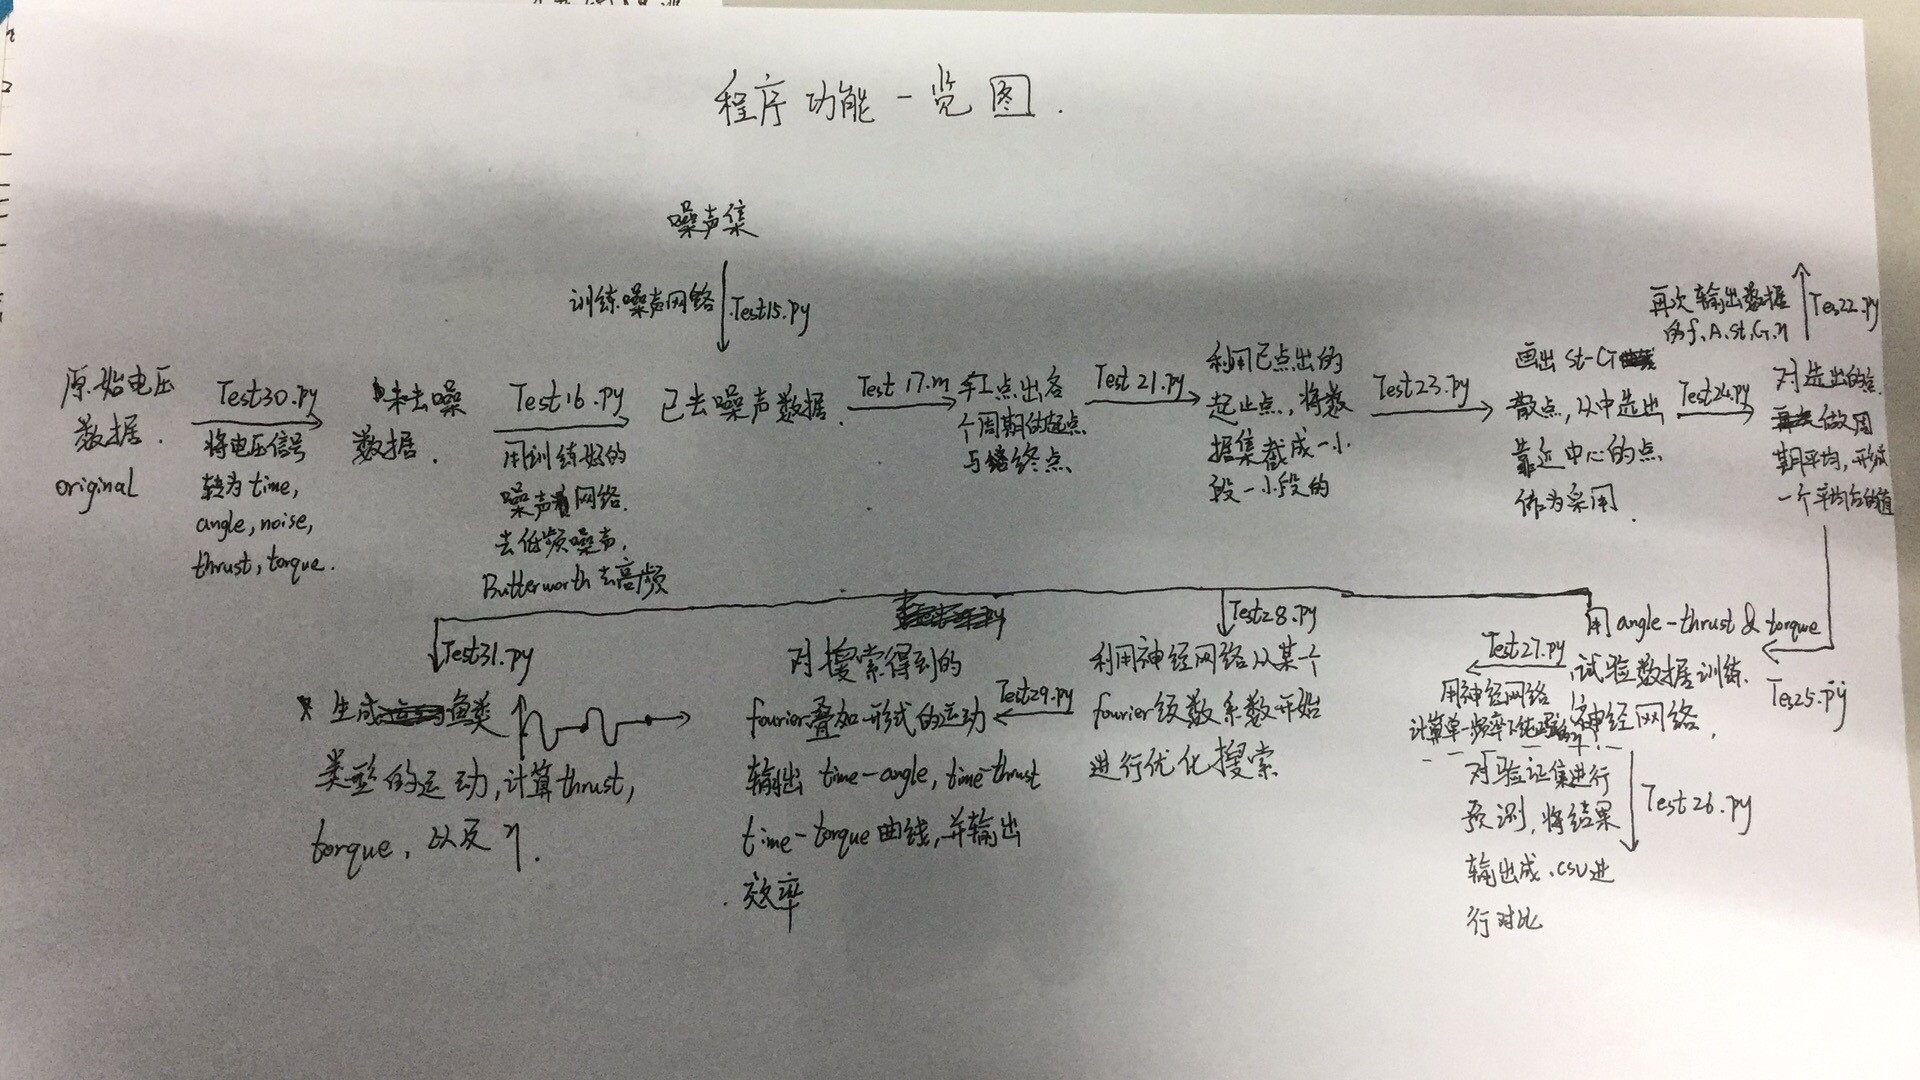 程序功能一览图.
噪声集
训练噪声网络
Test15.py
原始电压
数据.
original
Test30.py
将电压信号
转为time,
angle, noise,
thrust, torque.
未去噪
数据.
Test16.py
用训练好的
噪声网络.
去低频噪声,
Butterworth去高频
已去噪声数据.
Test 17.m
手工点出各
个周期的起点
与终点、
Test 21.py
利用已点出的
起止点,将数
据集截成一小
段一小段的
Test23.py
画出 St-CT
散点,从中选出
靠近中心的点
作为采用.
Test24.py
对选出的
做周
期平均,形成
一个平均后的值
再次输出数据
的f.A.St.CT.η
Tes22.py
Tes25.py
用angle-thrust & torque
试验数据训练
神经网络.
Test27.py
用神经网络
计算单一频率下
Test26.py
对验证集进行
预测,将结果
输出成.csv进
行对比
Test28.py
利用神经网络从某一个
fourier级数系数开始
进行优化搜索
Test29.py
对搜索得到的
fourier叠加形式的运动
输出 time-angle, time-thrust
time-torque曲线,并输出
效率
Test31.py
生成鱼类
类型的运动,计算thrust,
torque, 以及η.